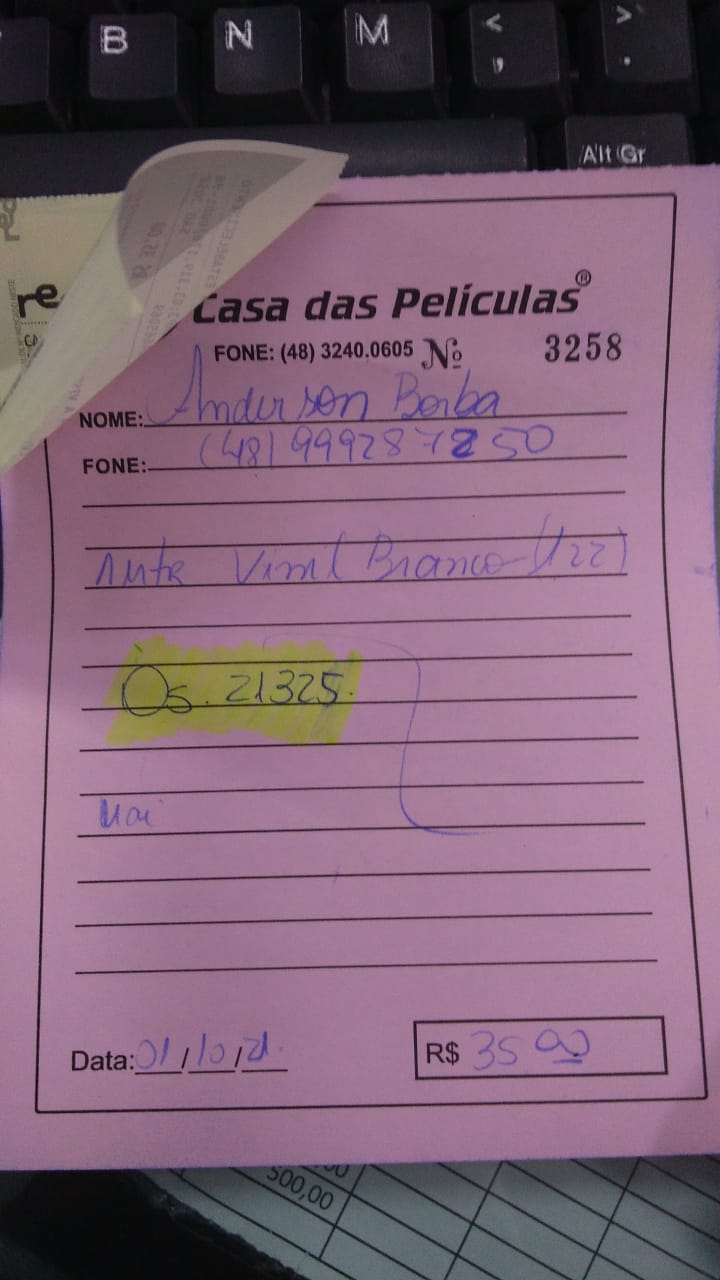 B N M < , > .
Alt Gr
re
Casa das Películas®
FONE: (48) 3240.0605 Nº 3258
NOME: Anderson Borba
FONE: (48) 999287250
1 Mtr Vinil Branco (122)
Os. 21325.
Data: 01/10/21.
R$ 35 00
500,00